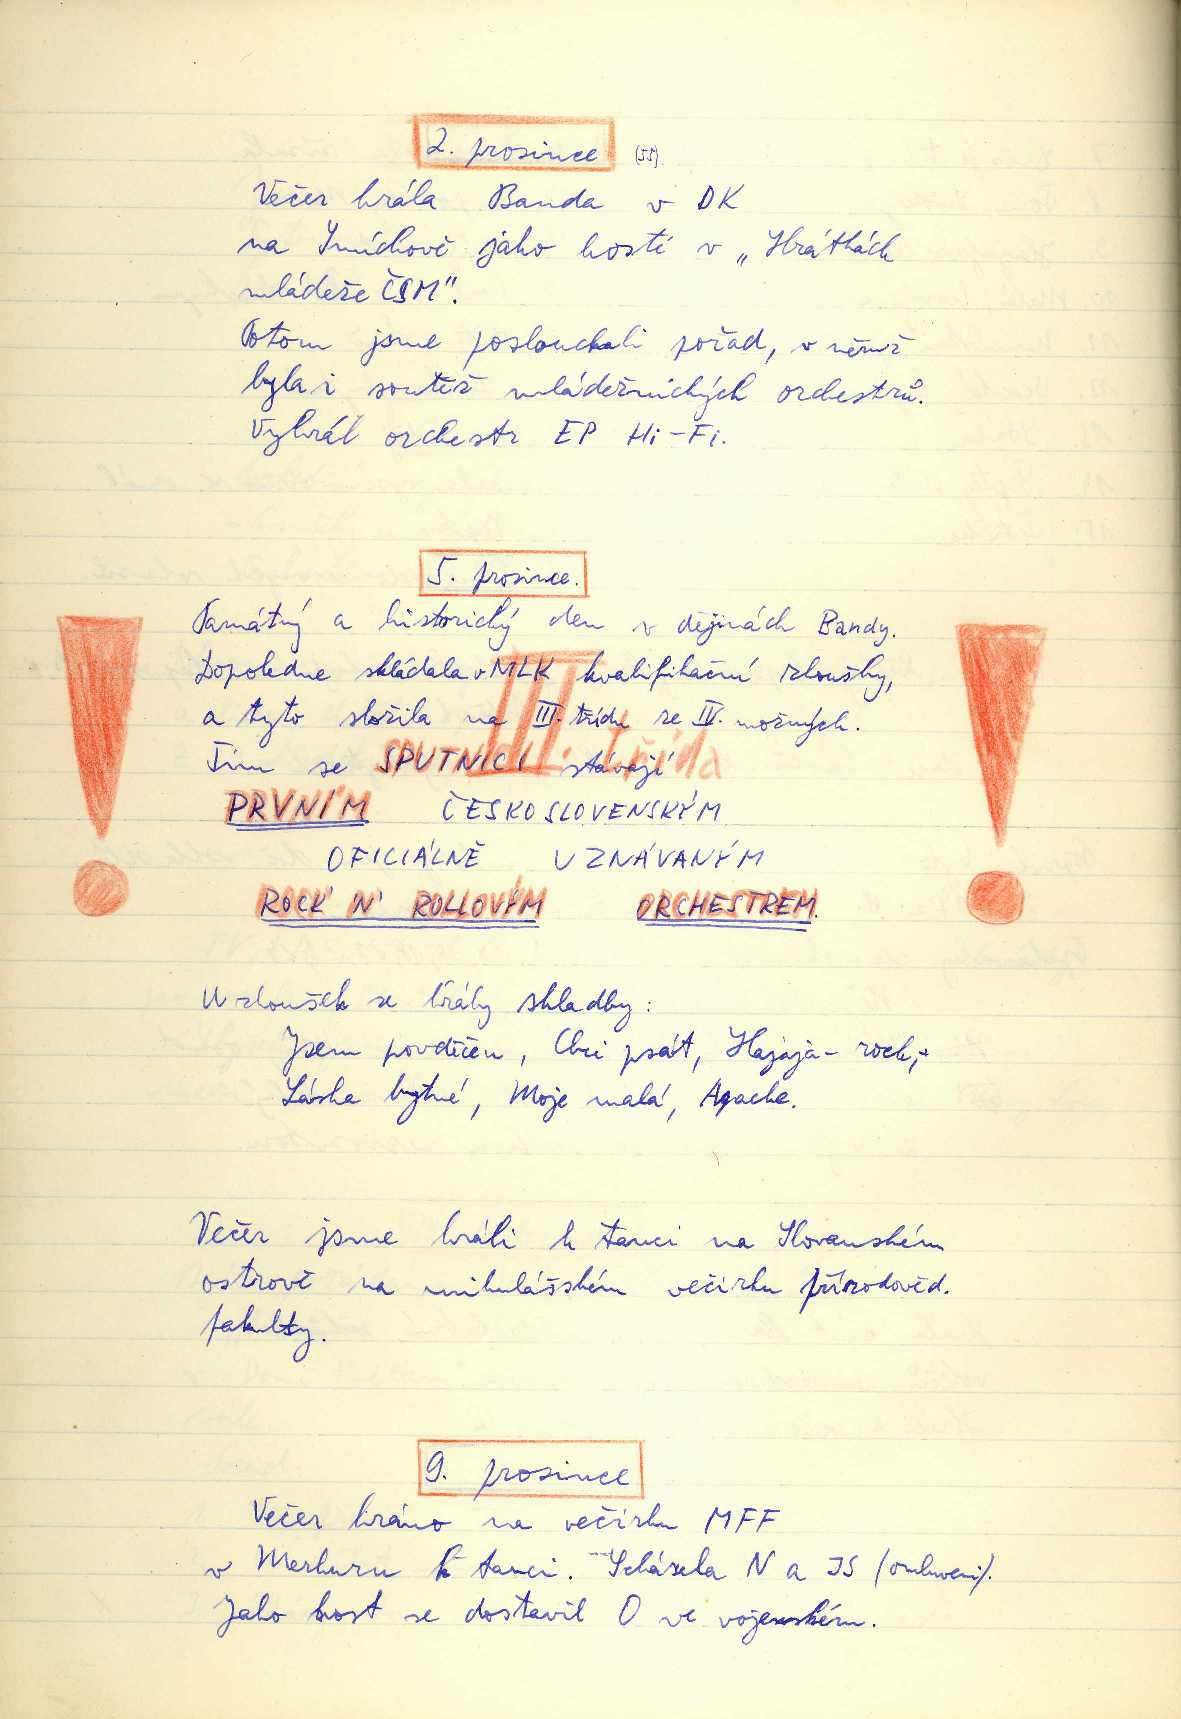 2. prosince (55).
Večer hrála Banda v DK
na Smíchově jako hosté v „Hrátkách
mládeže ČSM".
Potom jsme poslouchali pořad, v němž
byla i soutěž mládežnických orchestrů.
Vyhrál orchestr EP Hi-Fi.
5. prosince.
Památný a historický den v dějinách Bandy.
Dopoledne skládala v MLK kvalifikační zkoušky,
a tyto složila na III. třídu ze IV. možných.
III. třída
Tím se SPUTNICI stávají
PRVNÍM ČESKOSLOVENSKÝM
OFICIÁLNĚ UZNÁVANÝM
ROCK 'N' ROLLOVÝM ORCHESTREM.
! !
U zkoušek se hrály skladby:
Jsem povděčen, Chci psát, Hajajá-rock,
Láska bytné, Moje malá, Apache.
Večer jsme hráli k tanci na Slovanském
ostrově na mikulášském večírku přírodověd.
fakulty.
9. prosince
Večer hráno na večírku MFF
v Merkuru k tanci. Scházela N a JS (omluveni).
Jako host se dostavil O ve vojenském.